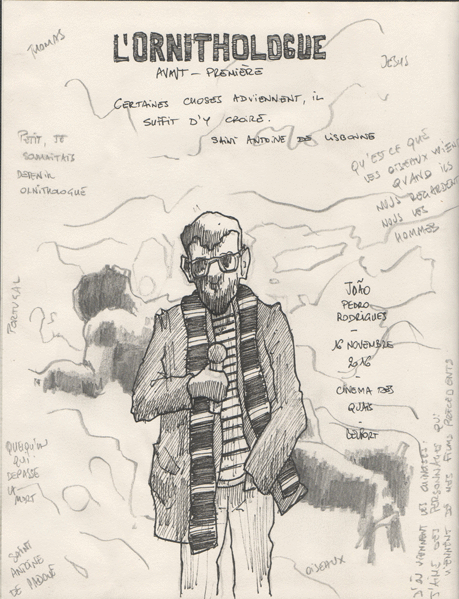 L'ORNITHOLOGUE
AVANT-PREMIÈRE
CERTAINES CHOSES ADVIENNENT, IL
SUFFIT D'Y CROIRE.
SAINT ANTOINE DE LISBONNE
THOMAS
JESUS
PETIT, JE
SOUHAITAIS
DEVENIR
ORNITHOLOGUE
QU'EST CE QUE
LES OISEAUX VOIENT
QUAND ILS
NOUS REGARDENT
NOUS LES
HOMMES
PORTUGAL
JOÃO
PEDRO
RODRIGUES
-
16 NOVEMBRE
2016
-
CINEMA DES
QUAIS
-
BELFORT
QUELQU'UN
QUI
DEPASSE
LA
MORT
SAINT
ANTOINE
DE PADOUE
OISEAUX
D'OÙ VIENNENT LES CHINOISES?
J'AIME DES PERSONNAGES QUI
VIENNENT DE MES FILMS PRECEDENTS